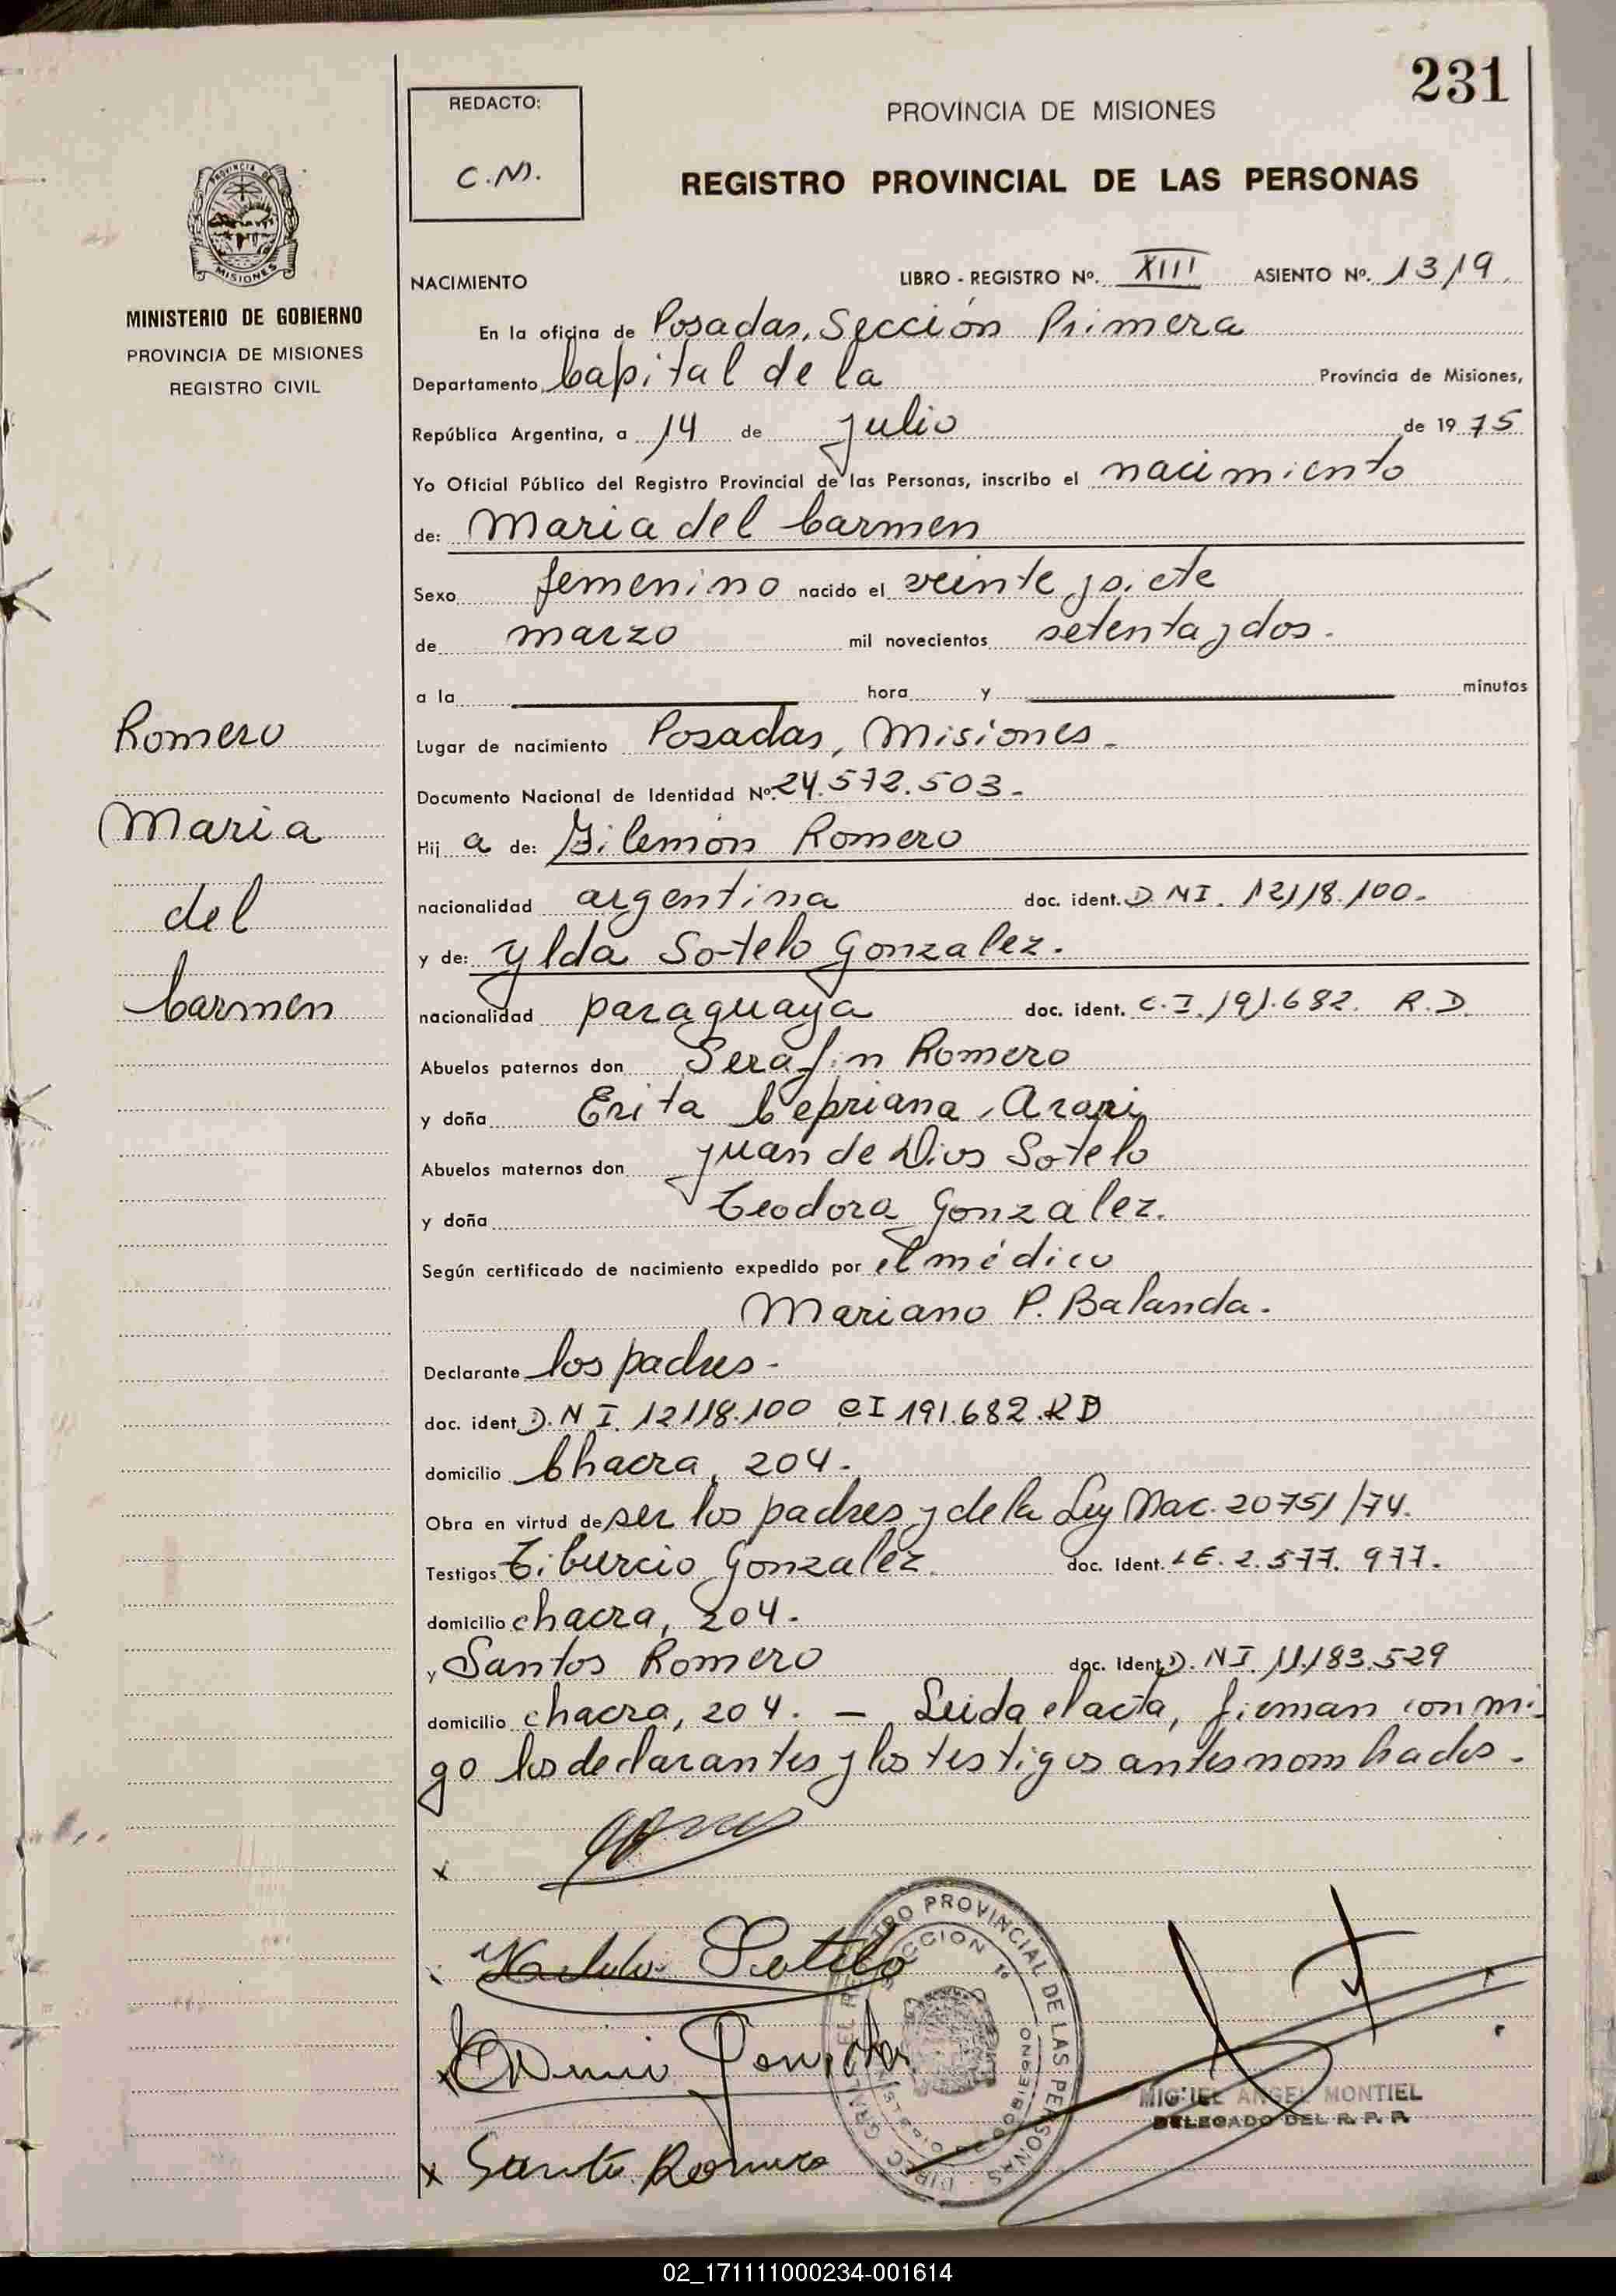 231
REDACTO:
C.N.
PROVINCIA DE MISIONES
REGISTRO PROVINCIAL DE LAS PERSONAS
PROVINCIA DE
MISIONES
MINISTERIO DE GOBIERNO
PROVINCIA DE MISIONES
REGISTRO CIVIL
Romero
Maria
del
Carmen
NACIMIENTO LIBRO - REGISTRO Nº. XIII ASIENTO Nº. 1319.
En la oficina de Posadas, Sección Primera
Departamento Capital de la Provincia de Misiones,
República Argentina, a 14 de Julio de 1975
Yo Oficial Público del Registro Provincial de las Personas, inscribo el nacimiento
de: Maria del Carmen
Sexo femenino nacido el veinte y siete
de marzo mil novecientos setenta y dos.
a la hora y minutos
Lugar de nacimiento Posadas, Misiones.
Documento Nacional de Identidad Nº. 24.572.503.-
Hij a de: Filemón Romero
nacionalidad argentina doc. ident. D.N.I. 12118.100.
y de: Ylda Sotelo Gonzalez.
nacionalidad paraguaya doc. ident. C.I. 191.682. R.D.
Abuelos paternos don Serafin Romero
y doña Erita Cepriana
Abuelos maternos don Juan de Dios Sotelo
y doña Teodora Gonzalez.
Según certificado de nacimiento expedido por el médico
Mariano P. Balanda.
Declarante los padres-
doc. ident D.N I. 12118.100 CI 191.682.R D
domicilio Chacra, 204.
Obra en virtud de ser los padres y de la Ley Nac. 20751/74.
Testigos Tiburcio Gonzalez. doc. Ident. LE. 2.577.977.
domicilio chacra, 204.
y Santos Romero doc. Ident D. NI. 11.183.529
domicilio chacra, 204. — Leida el acta, firman conmi
go los declarantes y los testigos antes nombrados.
x
Sotelo
x
x Santo Romero
DIREC. GRAL. DEL REGISTRO PROVINCIAL DE LAS PERSONAS
SECCION 1º
MINISTERIO DE GOBIERNO
MIGUEL ANGEL MONTIEL
DELEGADO DEL R. P. P.
02_171111000234-001614